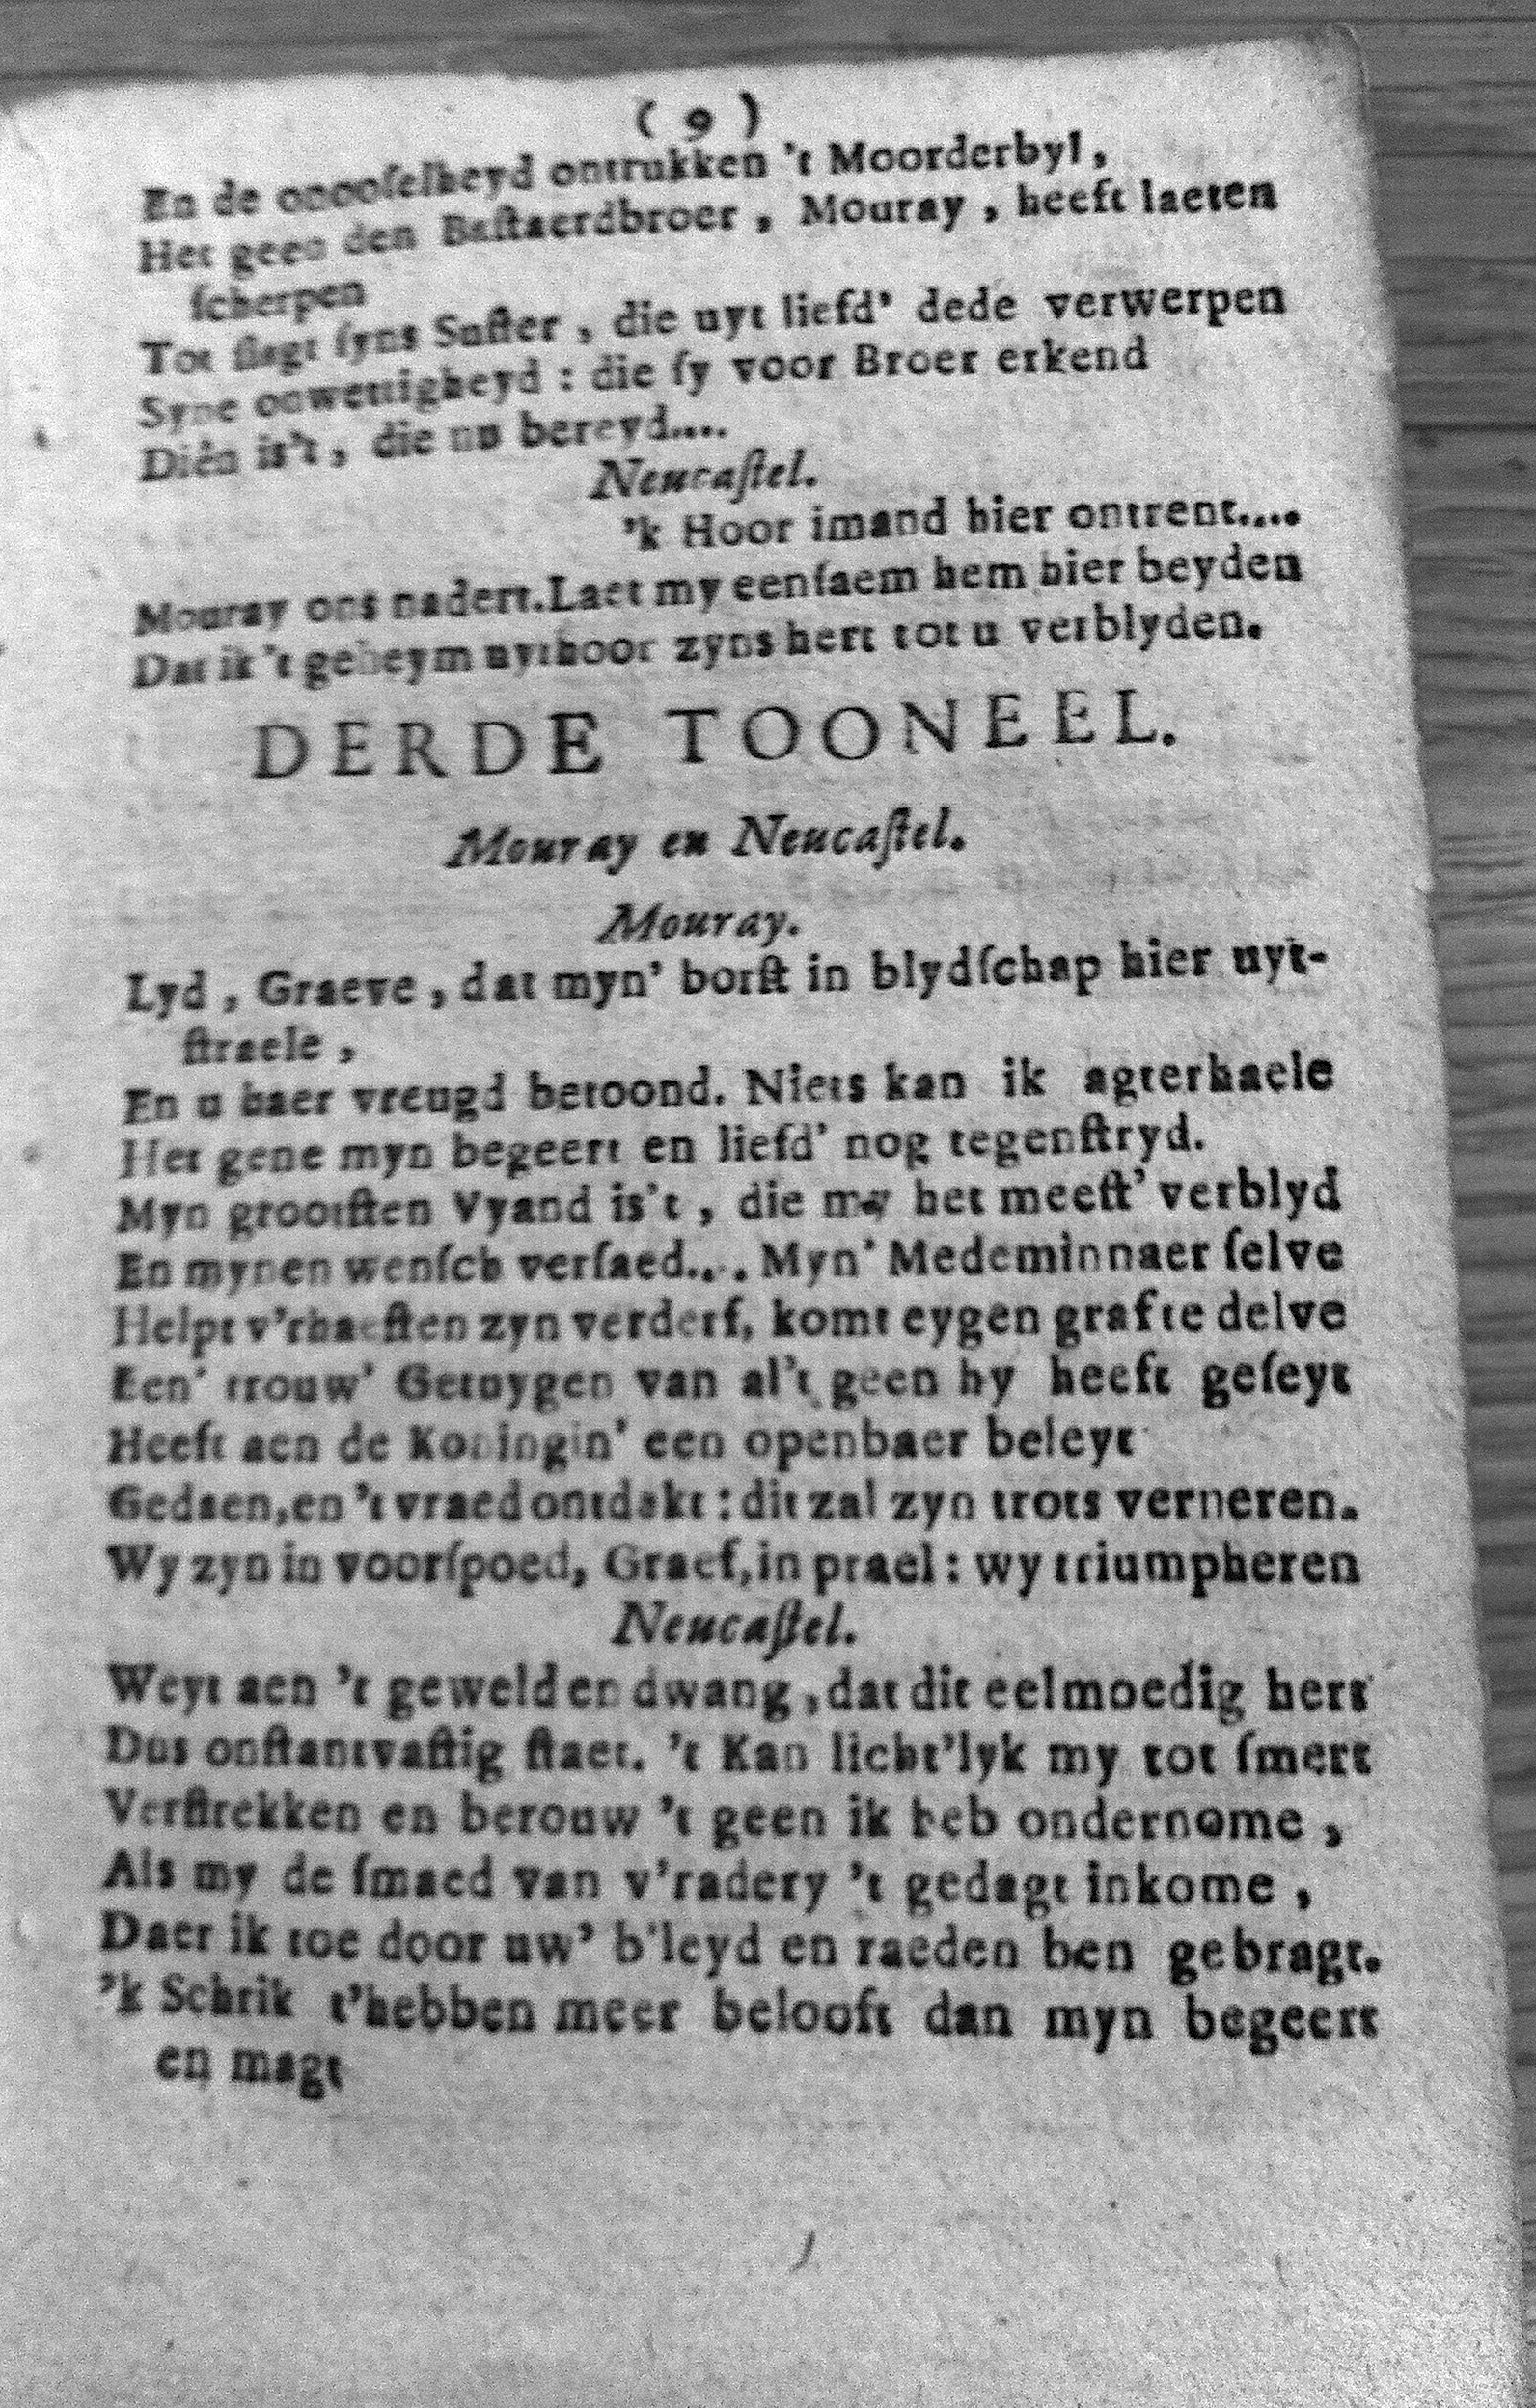 ( 9 )
En de onooſelheyd ontrukken 't Moorderbyl,
Het geen den Baſtaerdbroer, Mouray, heeft laeten
ſcherpen
Tot ſlagt ſyns Suſter, die uyt liefd' dede verwerpen
Syne onwettigheyd: die ſy voor Broer erkend
Diên is't, die nu bereyd....
Neucaſtel.
'k Hoor imand hier ontrent....
Mouray ons nadert. Laet my eenſaem hem hier beyden
Dat ik 't geheym uythoor zyns hert tot u verblyden.
DERDE TOONEEL.
Mouray en Neucaſtel.
Mouray.
Lyd, Graeve, dat myn' borſt in blydſchap hier uyt-
ſtraele,
En u haer vreugd betoond. Niets kan ik agterhaele
Het gene myn begeert en liefd' nog tegenſtryd.
Myn grootſten Vyand is't, die my het meeſt' verblyd
En mynen wenſch verſaed.... Myn' Medeminnaer ſelve
Helpt v'rhaeſten zyn verderf, komt eygen graf te delve
Een' trouw' Getuygen van al't geen hy heeft geſeyt
Heeft aen de Koningin' een openbaer beleyt
Gedaen, en 't vraed ontdekt: dit zal zyn trots verneren.
Wy zyn in voorſpoed, Graef, in prael: wy triumpheren
Neucaſtel.
Weyt aen 't geweld en dwang, dat dit eelmoedig hert
Dus onſtantvaſtig ſtaet. 't Kan licht'lyk my tot ſmert
Verſtrekken en berouw 't geen ik heb ondernome,
Als my de ſmaed van v'radery 't gedagt inkome,
Daer ik toe door uw' b'leyd en raeden ben gebragt.
'k Schrik t'hebben meer belooft dan myn begeert
en magt